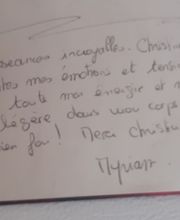 séances incroyables. Christ
tes mes émotions et tensi
toute mon énergie et m
légère dans mon corps
ien fou ! Merci Christ
Myriam